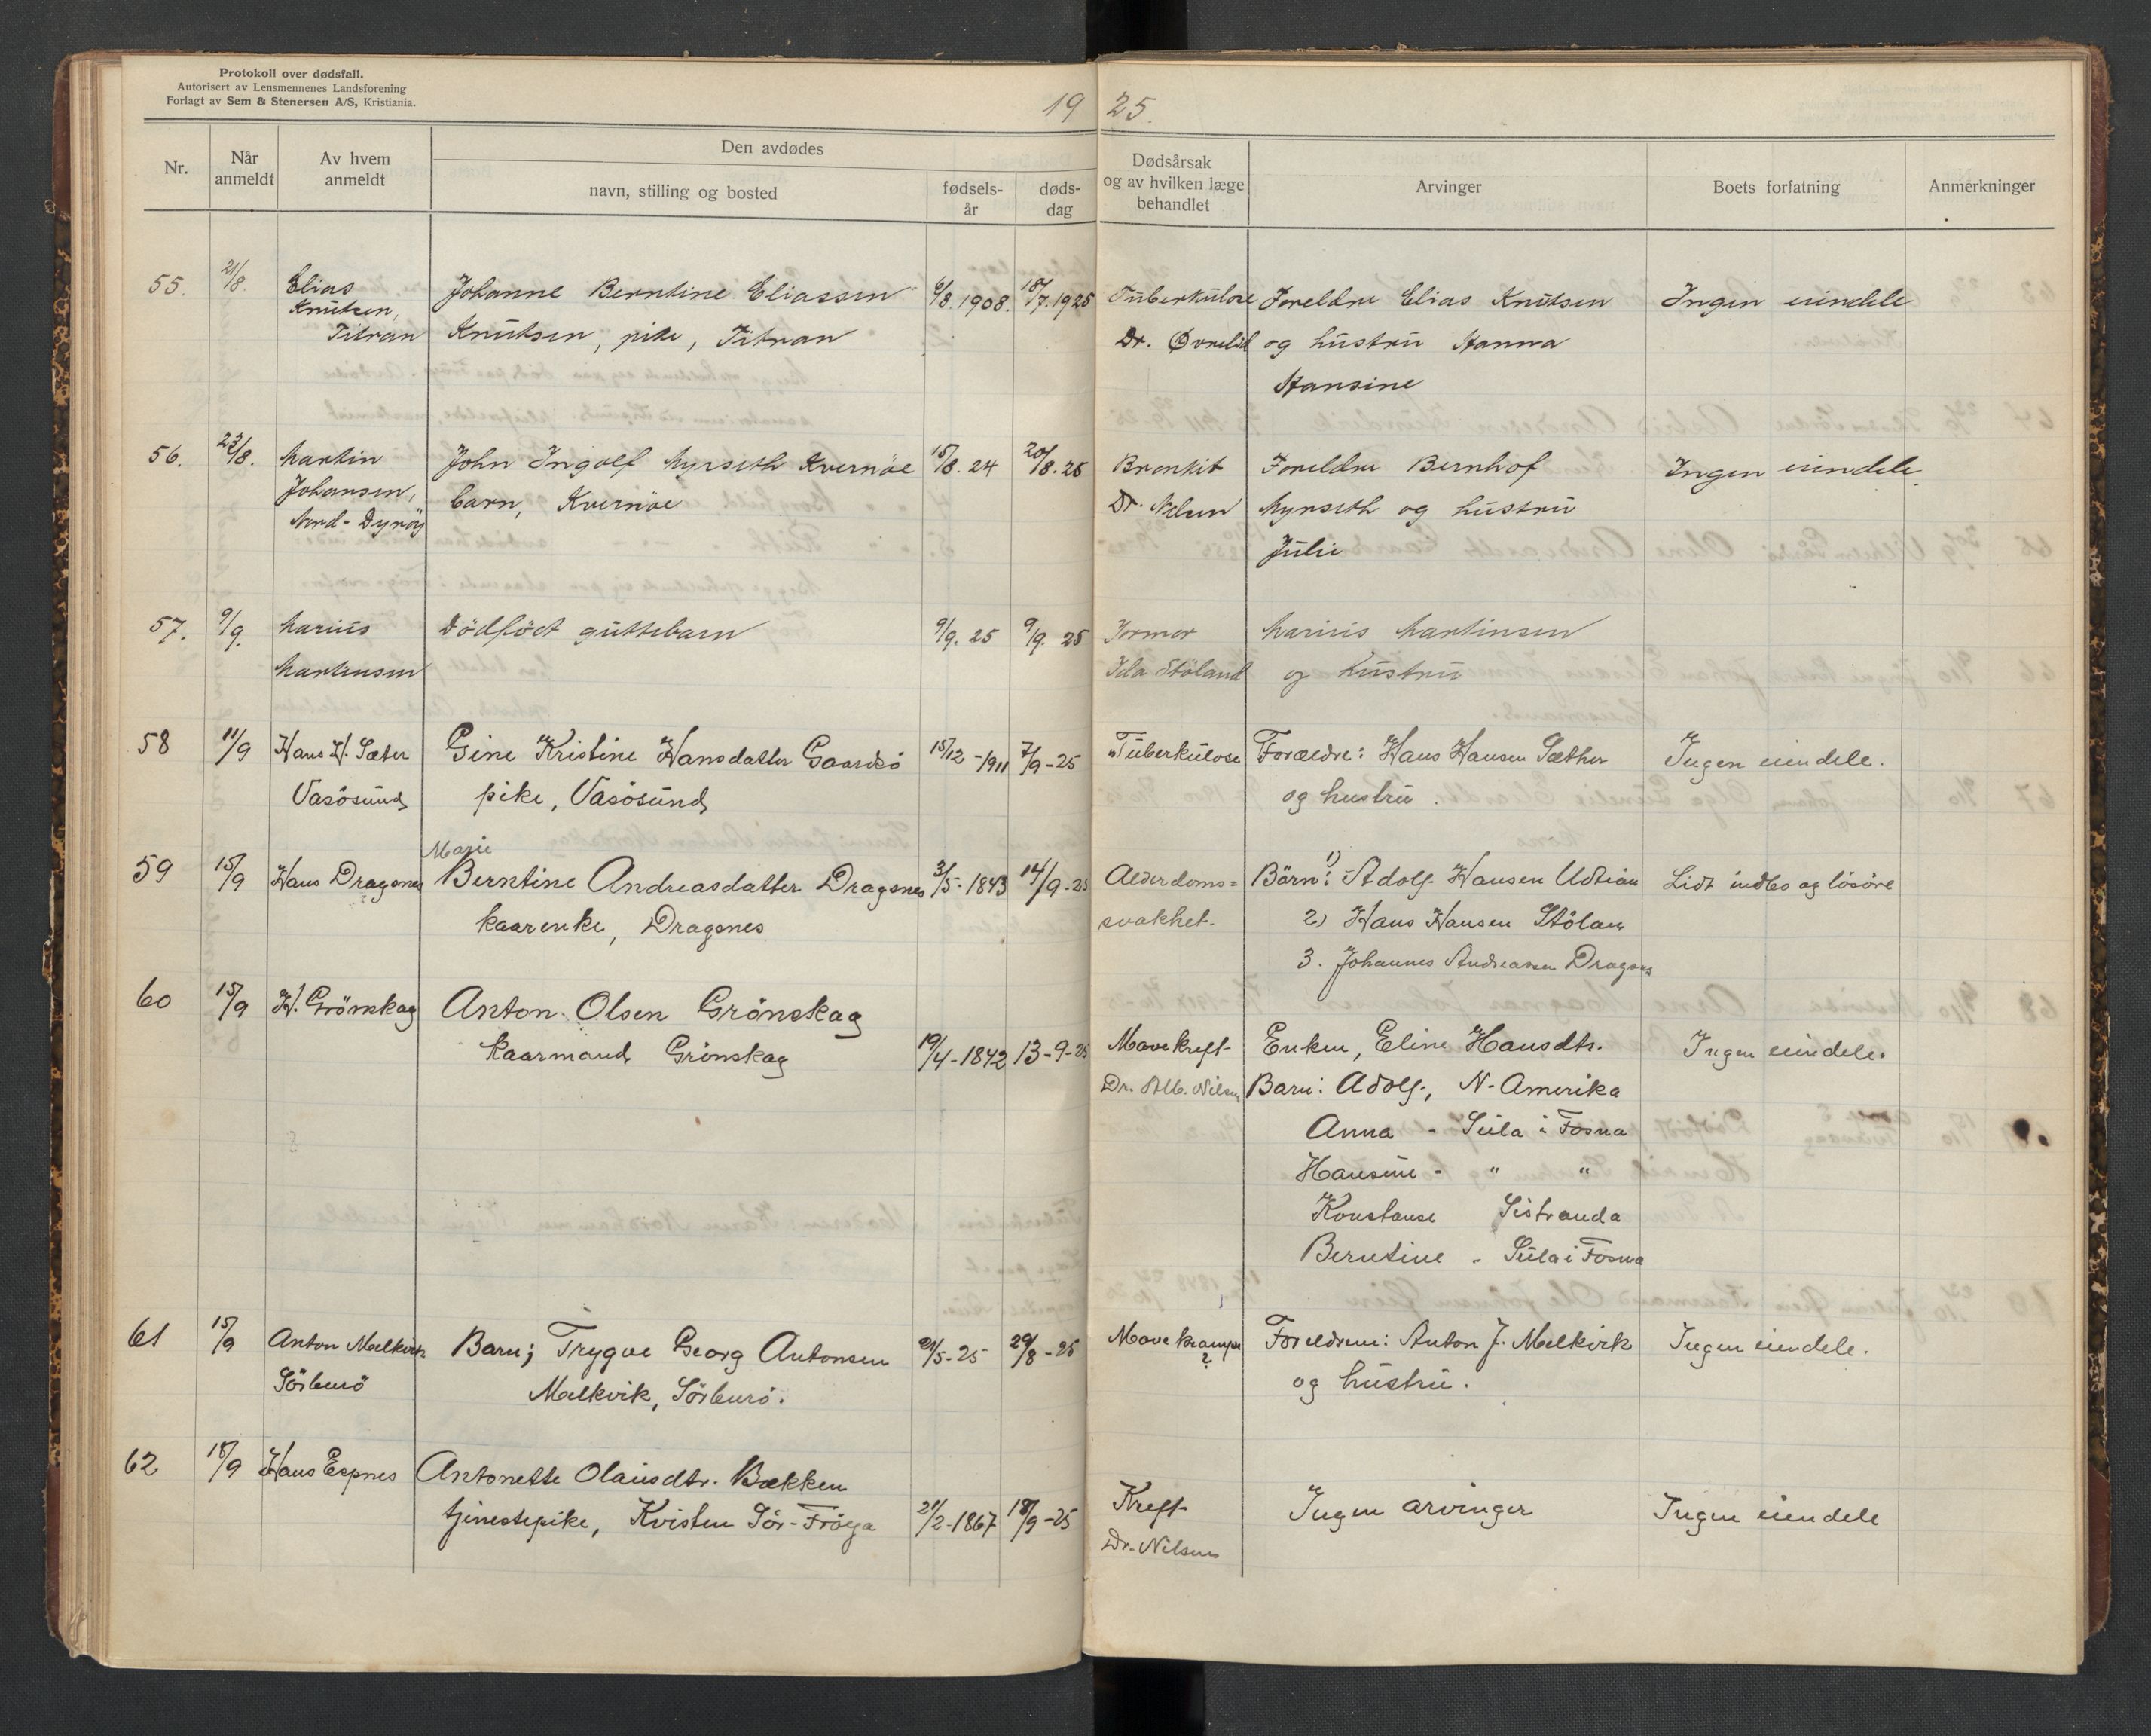 Protokoll over dødsfall.
Autorisert av Lensmennenes Landsforening
Forlagt av Sem & Stenersen A/S, Kristiania.
19 25.
Nr.
Når anmeldt
Av hvem anmeldt
Den avdødes
navn, stilling og bosted
fødsels-år
døds-dag
Dødsårsak og av hvilken læge behandlet
Arvinger
Boets forfatning
Anmerkninger
55. 21/8 Elias Johanne Berntine Eliassen 6/8. 1908. 18/7. 1925 Tuberkulose Foreldre Elias Knutsen Ingen eiendele
Knutsen, Titran Knutsen, pike, Titran Dr. Øvrelid og hustru Hanna
Hansine
56. 22/8. Martin John Ingolf Myrseth Kvernöe 15/8. 24 20/8. 25 Bronkit Foreldre Bernhof Ingen eiendele
Johansen, barn, Kvernöe Dr. Nilsen Myrseth og hustru
Nord-Dyröy Julie
57. 9/9. Marius Dödfödt guttebarn 9/9. 25 9/9. 25 Jormor Marius Martinsen
Martinsen Ida Stöland og hustru
58 11/9 Hans H. Sæter Gine Kristine Hansdatter Gaardsö 15/12 - 1911 7/9 - 25 Tuberkulose Forældre: Hans Hansen Sæther Ingen eiendele.
Vasösund pike, Vasösund og hustru.
Marie
59 15/9 Hans Dragsnes Berntine Andreasdatter Dragsnes 3/5 - 1843 14/9 - 25 Alderdoms= Börn: 1) Adolf Hansen Udtian Lidt indbo og lösöre
kaarenke, Dragsnes svakhet. 2) Hans Hansen Stölan
3. Johannes Andreassen Dragsnes
60 15/9 H. Grönskag Anton Olsen Grönskag
kaarmand Grönskag 19/4 - 1842 13-9-25 Mavekreft Enken, Eline Hansdtr. Ingen eiendele.
Dr. Alb. Nilsen Barn: Adolf, N-Amerika
Anna - Sula i Fosna
Hansine - " "
Konstanse Sistranda
Berntine - Sula i Fosna
61 15/9 Anton Melkvik Barn; Trygve Georg Antonsen 21/5 - 25 29/8 - 25 Mavekrampe ? Foreldrene: Anton J. Melkvik Ingen eiendele.
Sörburö Melkvik, Sörburö. og hustru.
62 18/9 Hans Espnes Antonette Olausdtr. Bækken
tjenestepike, Kvisten Sör-Fröya 21/2 - 1867 18/9 - 25 Kreft Ingen arvinger Ingen eiendele
Dr. Nilsen